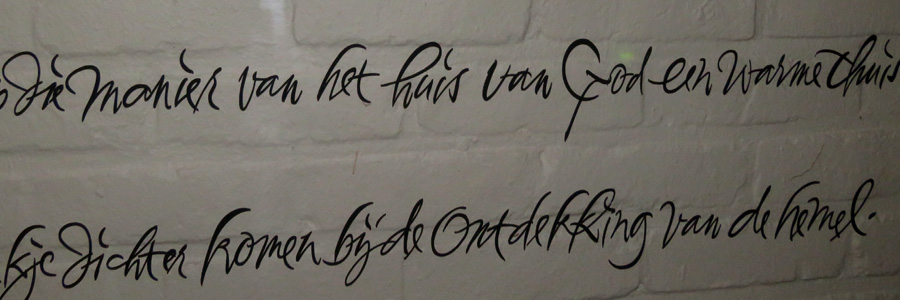 die manier van het huis van God een warme thuis
kje dichter komen bij de Ontdekking van de hemel.